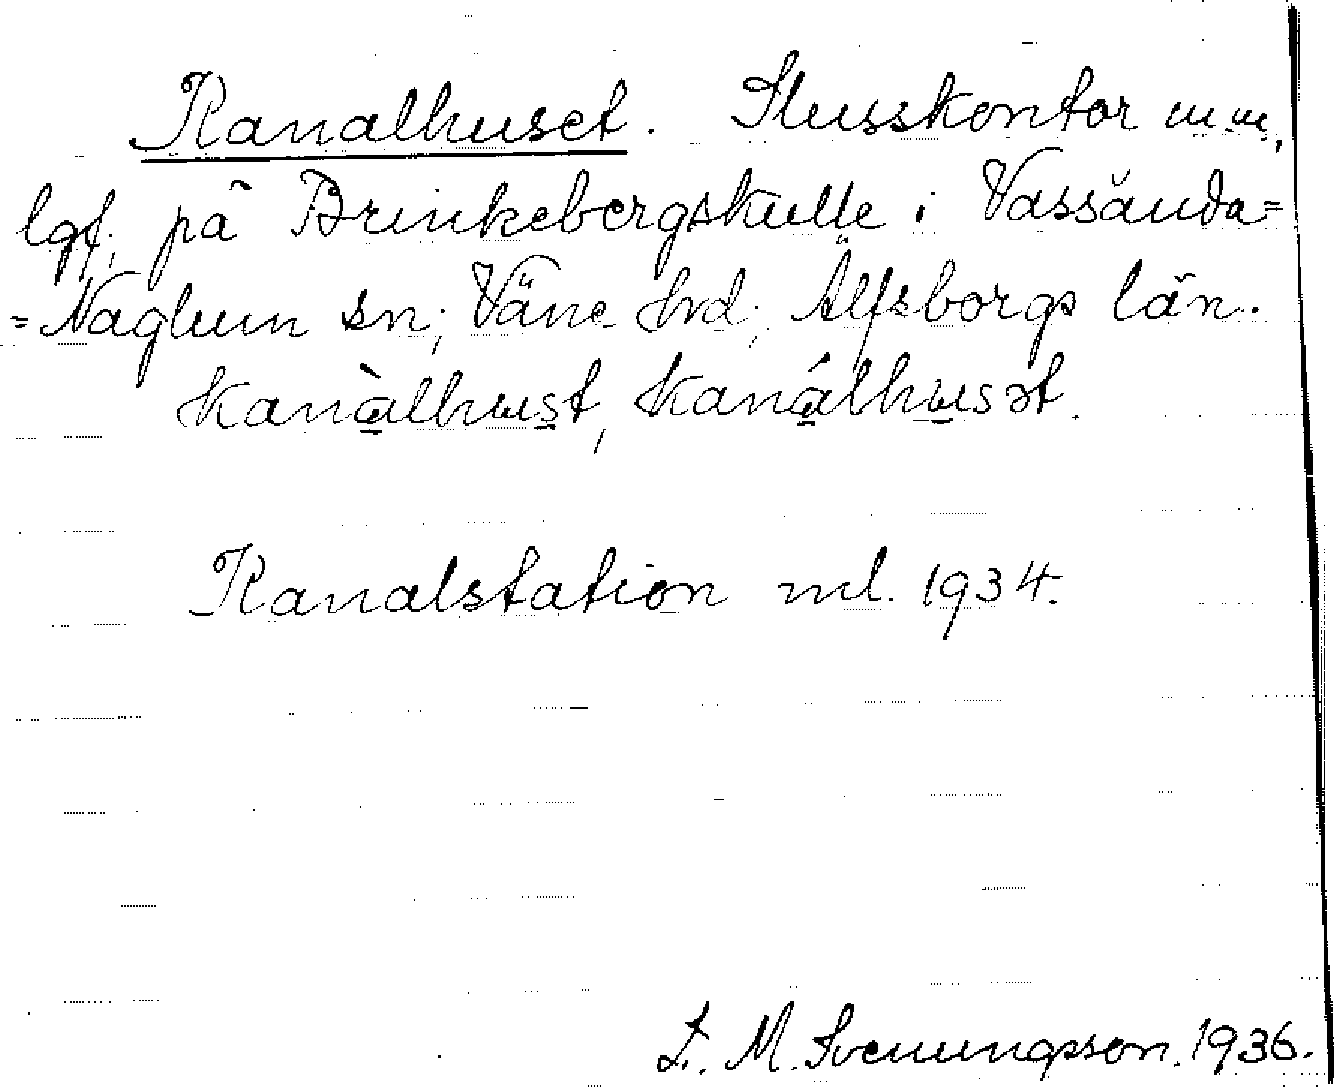 Kanalhuset. Slusskontor m.m,
lgf. på Brinkebergskulle i Vassända=
=Naglum sn; Väne hd; Älfsborgs län.
kanàlhust, kanálhusət.
Kanalstation ml. 1934.
L. M. Svenungsson. 1936.